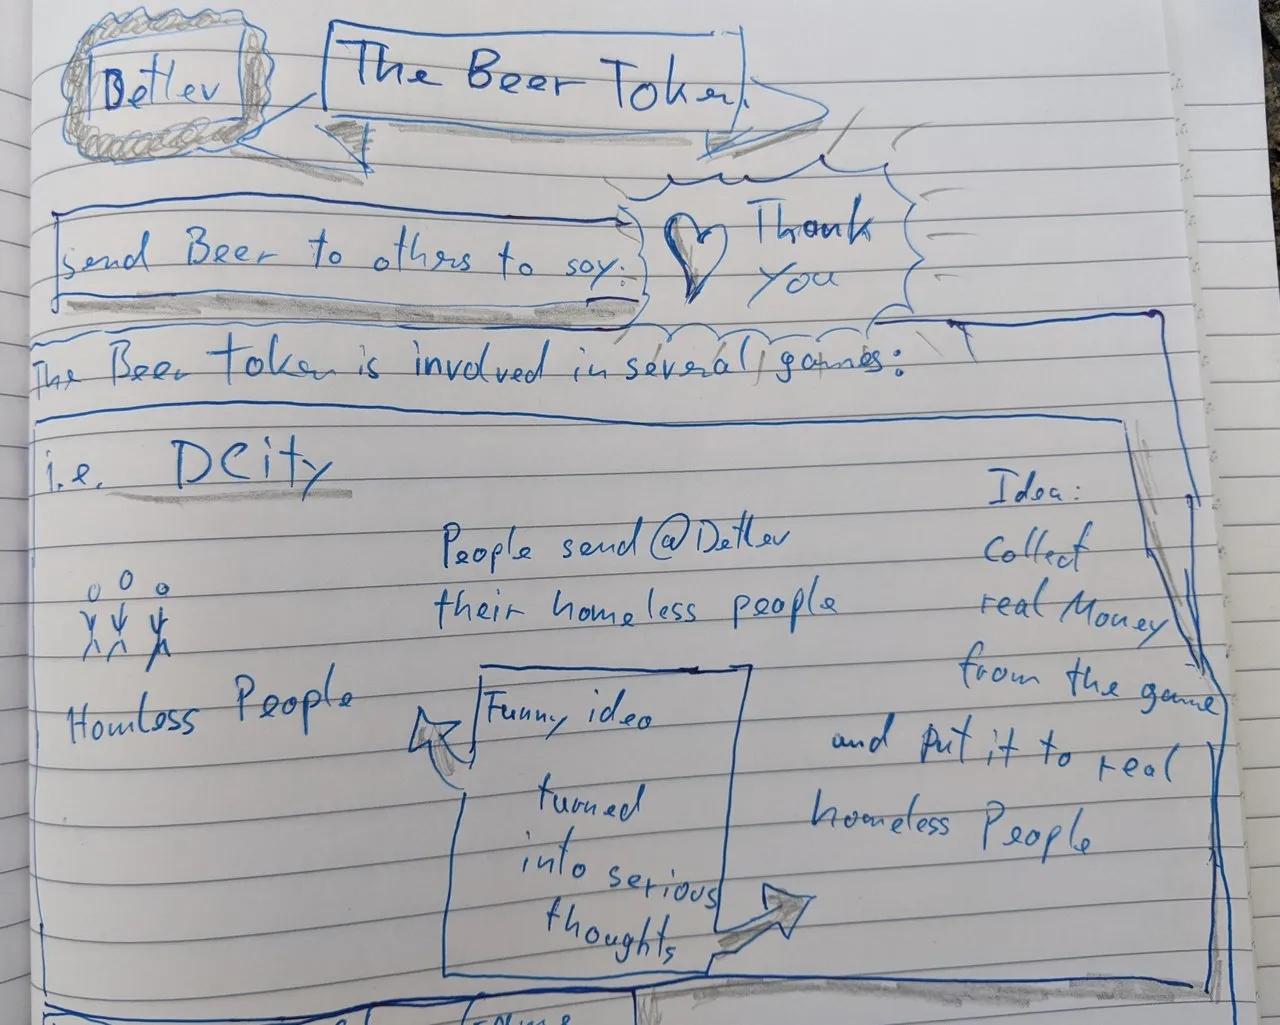 Detlev
The Beer Token
send Beer to others to say:
Thank
you
The Beer Token is involved in several games:
i.e. DCity
Homless People
People send @Detlev
their homeless people
Funny idea
turned
into serious
thoughts
Idea:
Collect
real Money
from the game
and put it to real
homeless People